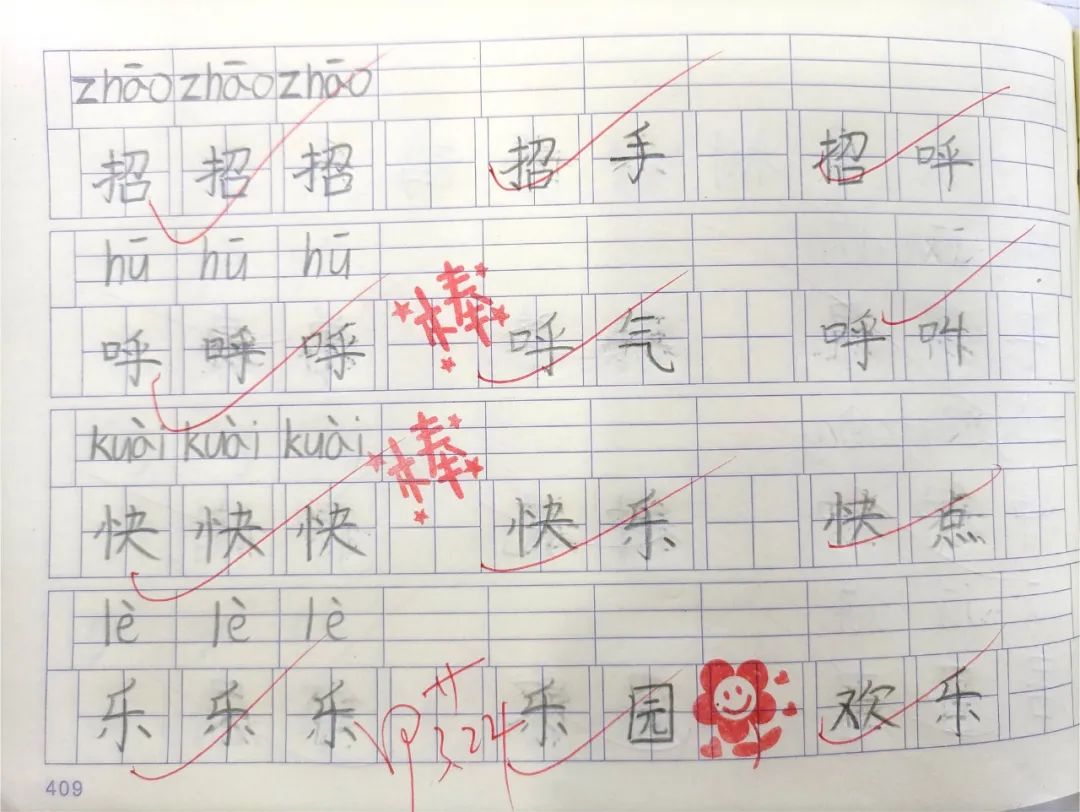 zhāo zhāo zhāo
招 招 招 招 手 招 呼
hū hū hū
呼 呼 呼 棒 呼 气 呼 叫
kuài kuài kuài
快 快 快 棒 快 乐 快 点
lè lè lè
乐 乐 乐 甲 廿 3.24 乐 园 欢 乐
409